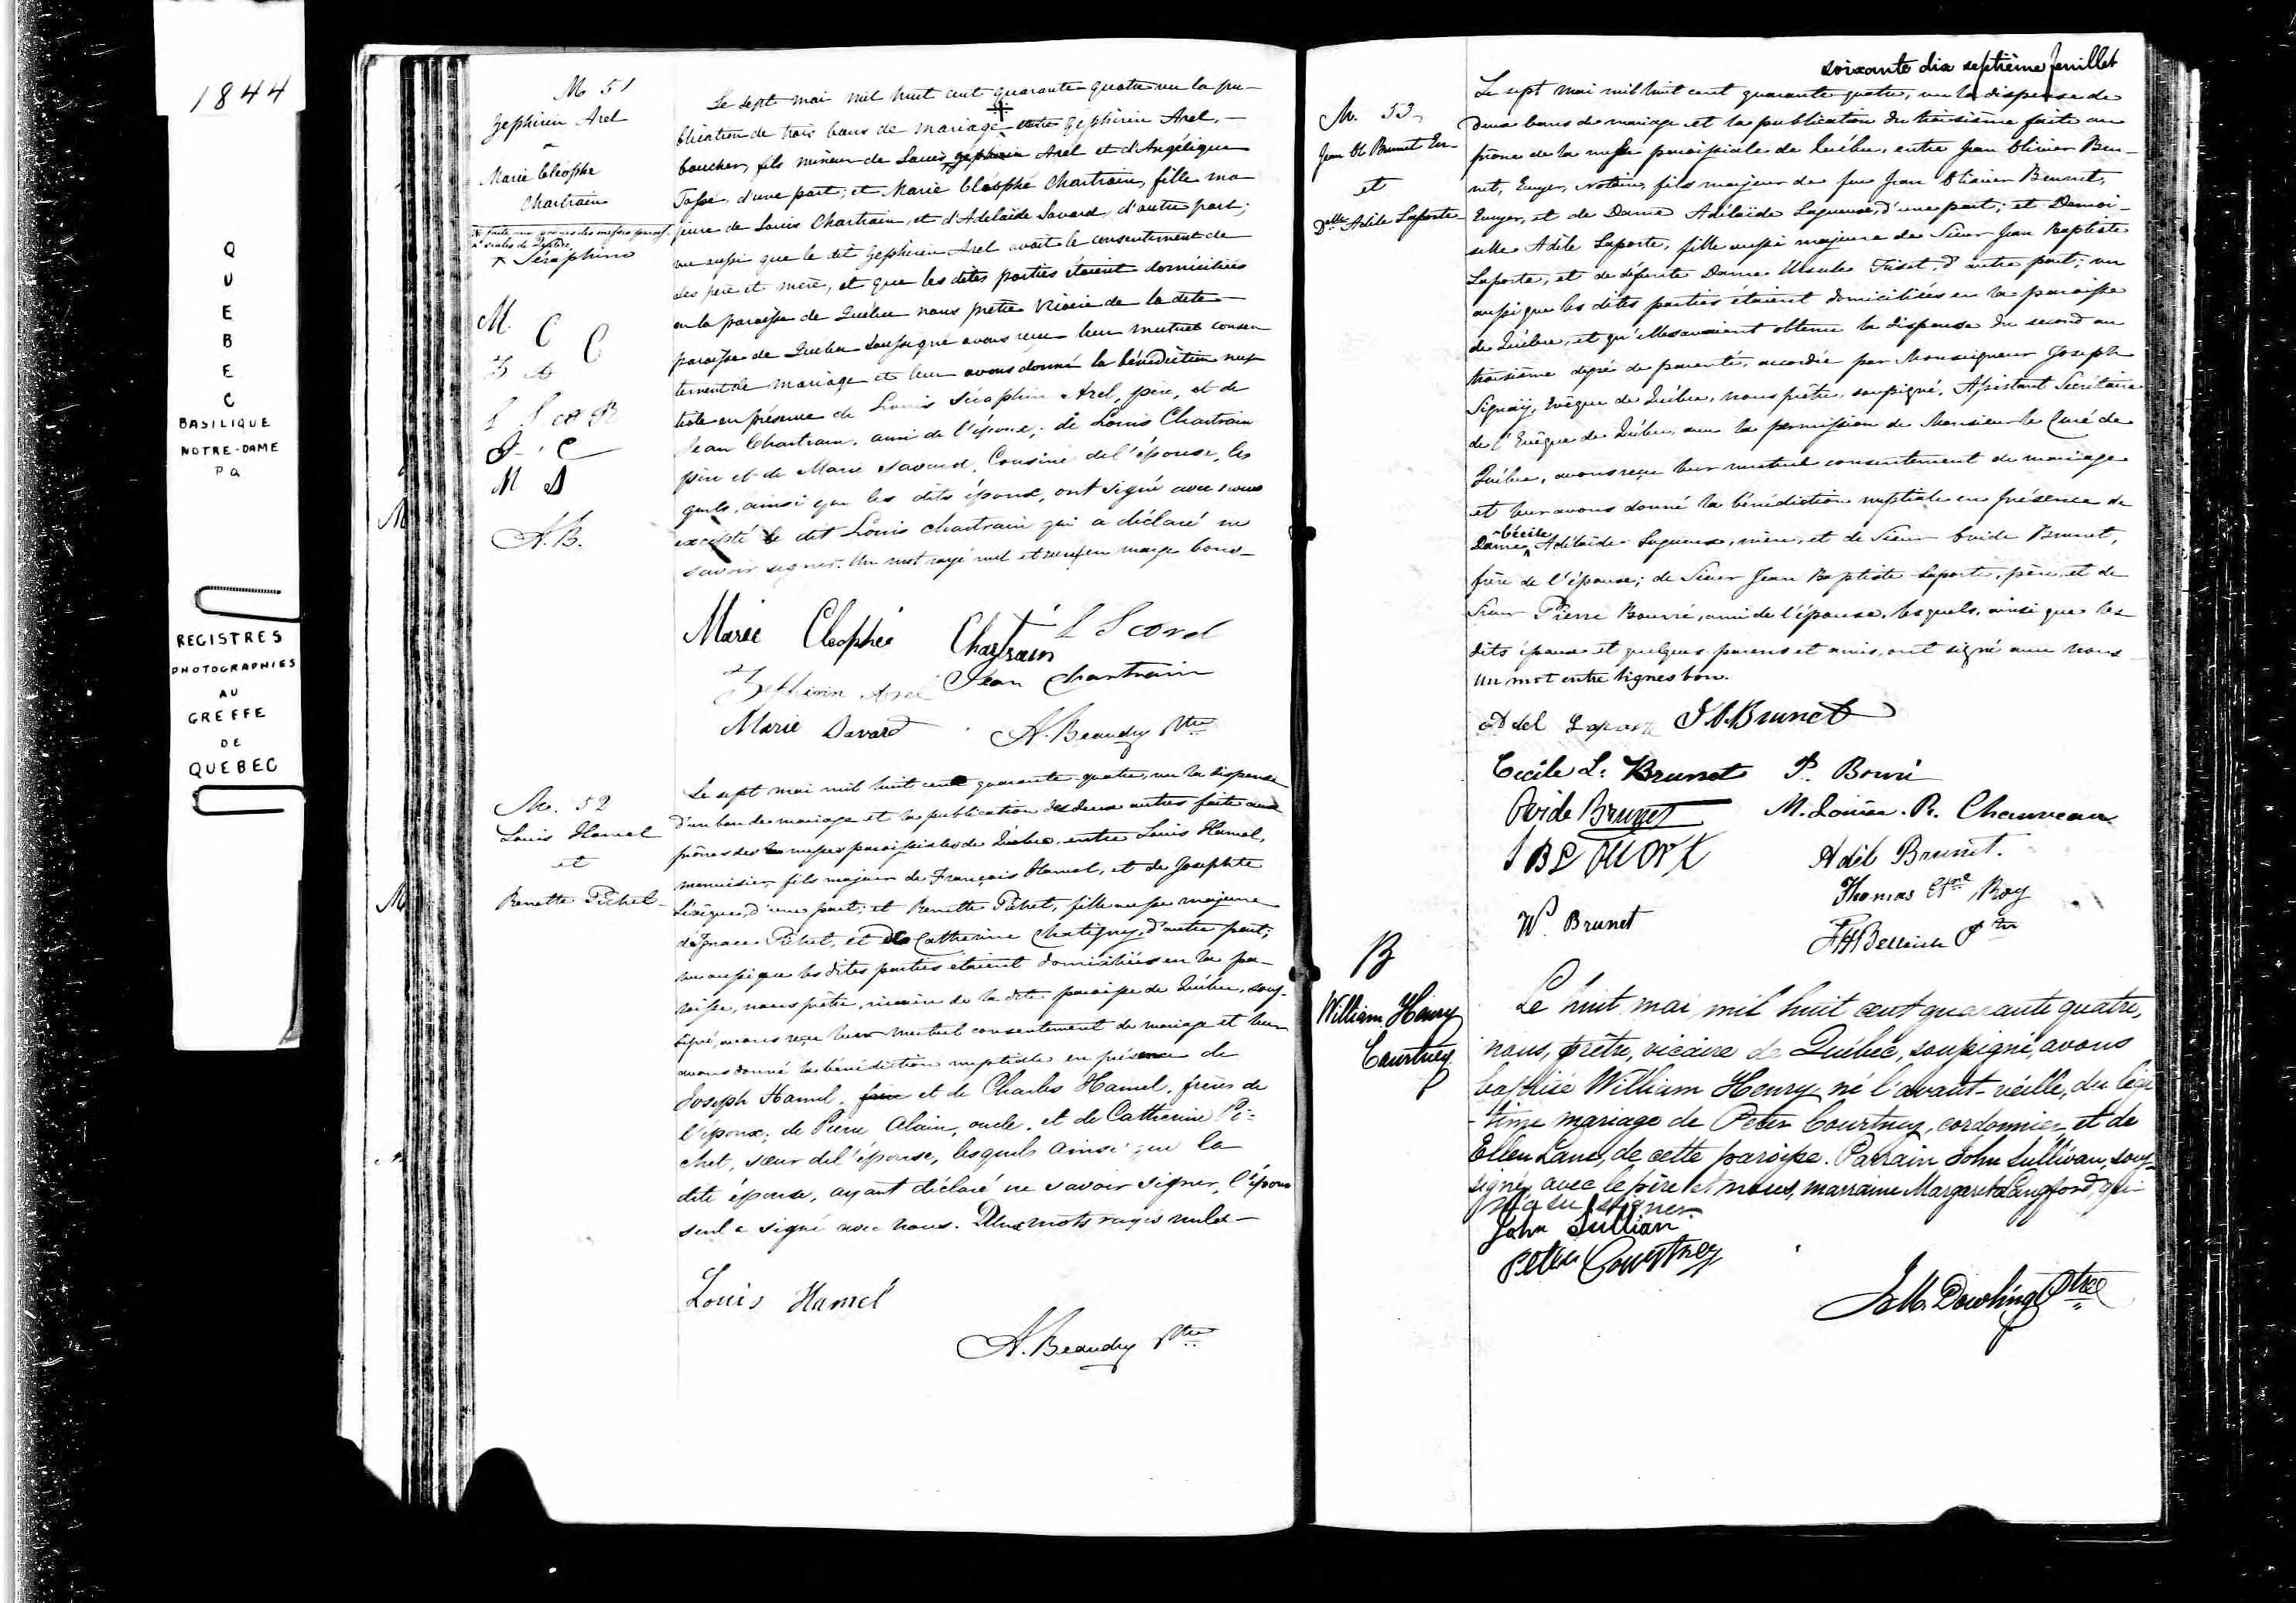 1844
QUEBEC
BASILIQUE
NOTRE-DAME
PQ
REGISTRES
PHOTOGRAPHIES
AU
GREFFE
DE
QUEBEC
M 51
Zephirin Arel
Marie Cléophe
Chartrain
+ Séraphin
M. C C
Z A
J. C
M S
A.B.
Le sept mai mil huit cent quarante quatre vu la pu-
blication de trois bans de mariage entre Zephirin Arel,
boucher, fils mineur de Louis Zéphirin Arel et d'Angélique
d'une part; et Marie Cléophé Chartrain, fille ma-
jeure de Louis Chartrain, et d'Adelaïde Savard, d'autre part;
vu aussi que le dit Zephirin Arel avait le consentement de
ses père et mère, et que les dites parties étaient domiciliées
en la paroisse de Québec nous prêtre vicaire de la dite
paroisse de Québec soussigné avons reçu leur mutuel consen
tement de mariage et leur avons donné la bénédiction nup
tiale en présence de Louis Séraphin Arel, père, et de
Jean Chartrain, ami de l'époux; de Louis Chartrain
père et de Marie Savard, Cousine de l'épouse, les
quels, ainsi que les dits époux, ont signé avec nous
excepté le dit Louis Chartrain qui a déclaré ne
savoir signer. Un mot rayé nul et en marge bons
Marie Cleophée Chartrain
Zephirin Arel Jean Chartrain
Marie Savard A. Beaudry Ptre
M. 52
Louis Hamel
et
Renette Pichet
Le sept mai mil huit cent quarante quatre, vu la dispense
d'un ban de mariage et la publication des deux autres faite aux
prônes des messes paroissiales de Québec, entre Louis Hamel,
menuisier, fils majeur de François Hamel, et de Josephte
d'une part; et Renette Pichet, fille aussi majeure
d'Ignace Pichet, et de Catherine Chatigny, d'autre part;
vu aussi que les dites parties étaient domiciliées en la pa-
roisse, nous prêtre, vicaire de la dite paroisse de Québec, sous-
signé, avons reçu leur mutuel consentement de mariage et leur
avons donné la bénédiction nuptiale en présence de
Joseph Hamel, frère et de Charles Hamel, frères de
l'époux; de Pierre Alain, oncle, et de Catherine Pi-
chet, sœur de l'épouse, lesquels ainsi que la
dite épouse, ayant déclaré ne savoir signer, l'époux
seul a signé avec nous. Deux mots rayés nuls
Louis Hamel
A. Beaudry Ptre
soixante dix septième feuillet
M. 53
Jean Ol. Brunet
et
Dlle Adèle Laporte
Le sept mai mil huit cent quarante quatre, vu la dispense de
deux bans de mariage et la publication du troisième faite au
prône de la messe paroissiale de Québec, entre Jean Olivier Bru-
net, Ecuyer, notaire, fils majeur de feu Jean Olivier Brunet,
Ecuyer, et de Dame Adélaïde Lagueux, d'une part; et Demoi-
selle Adèle Laporte, fille aussi majeure de Sieur Jean Baptiste
Laporte, et de défunte Dame Ursule d'autre part; vu
aussi que les dites parties étaient domiciliées en la paroisse
de Québec, et qu'elles avaient obtenu la dispense du second au
troisième degré de parenté, accordée par Monseigneur Joseph
Signaÿ, Evêque de Québec, nous prêtre, soussigné, Assistant Secrétaire
de l'Evêque de Québec, avec la permission de Monsieur le Curé de
Québec, avons reçu leur mutuel consentement de mariage
et leur avons donné la bénédiction nuptiale en présence de
Cécile
Dame Adélaïde Lagueux, mère, et de Sieur Ovide Brunet,
frère de l'époux; de Sieur Jean Baptiste Laporte, père, et de
Sieur Pierre Bourré, ami de l'épouse, lesquels, ainsi que les
dits époux et quelques parens et amis, ont signé avec nous
Un mot entre lignes bon.
Adel Laporte J.O. Brunet
Cecile L. Brunet P. Bouré
Ovide Brunet M. Louise P. Chauveau
Adèle Brunet.
Thomas Etne Roy
W. Brunet
Ptre
B
William Henry
Courtney
Le huit mai mil huit cent quarante quatre,
nous, prêtre, vicaire de Québec, soussigné, avons
baptisé William Henry né l'avant-veille, du légi
-time mariage de Peter Courtney, cordonnier, et de
Ellen Lane, de cette paroisse. Parrain John Sullivan, sous-
signé avec le père et nous, marraine Margaret Langford, qui
n'a su signer.
John Sullian
Peter Courtney
J. M. Dowling Ptre